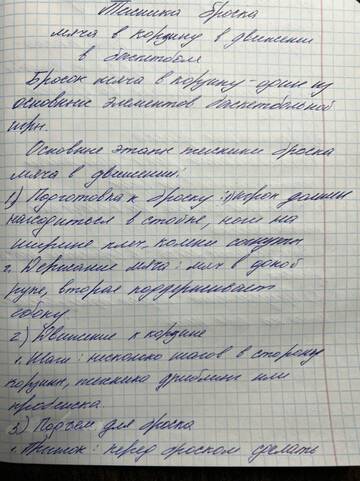 Техника броска
мяча в корзину в движении
в баскетболе
Бросок мяча в корзину - один из
основных элементов баскетбольной
игры.
Основные этапы техники броска
мяча в движении:
1) Подготовка к броску: игрок должен
находиться в стойке, ноги на
ширине плеч, колени согнуты
2. Держание мяча: мяч в одной
руке, вторая поддерживает
сбоку
2) Движение к корзине
1. Шаги: несколько шагов в сторону
корзины, техника дриблинг или
3) Подъем для броска
1. Прыжок: перед броском сделать